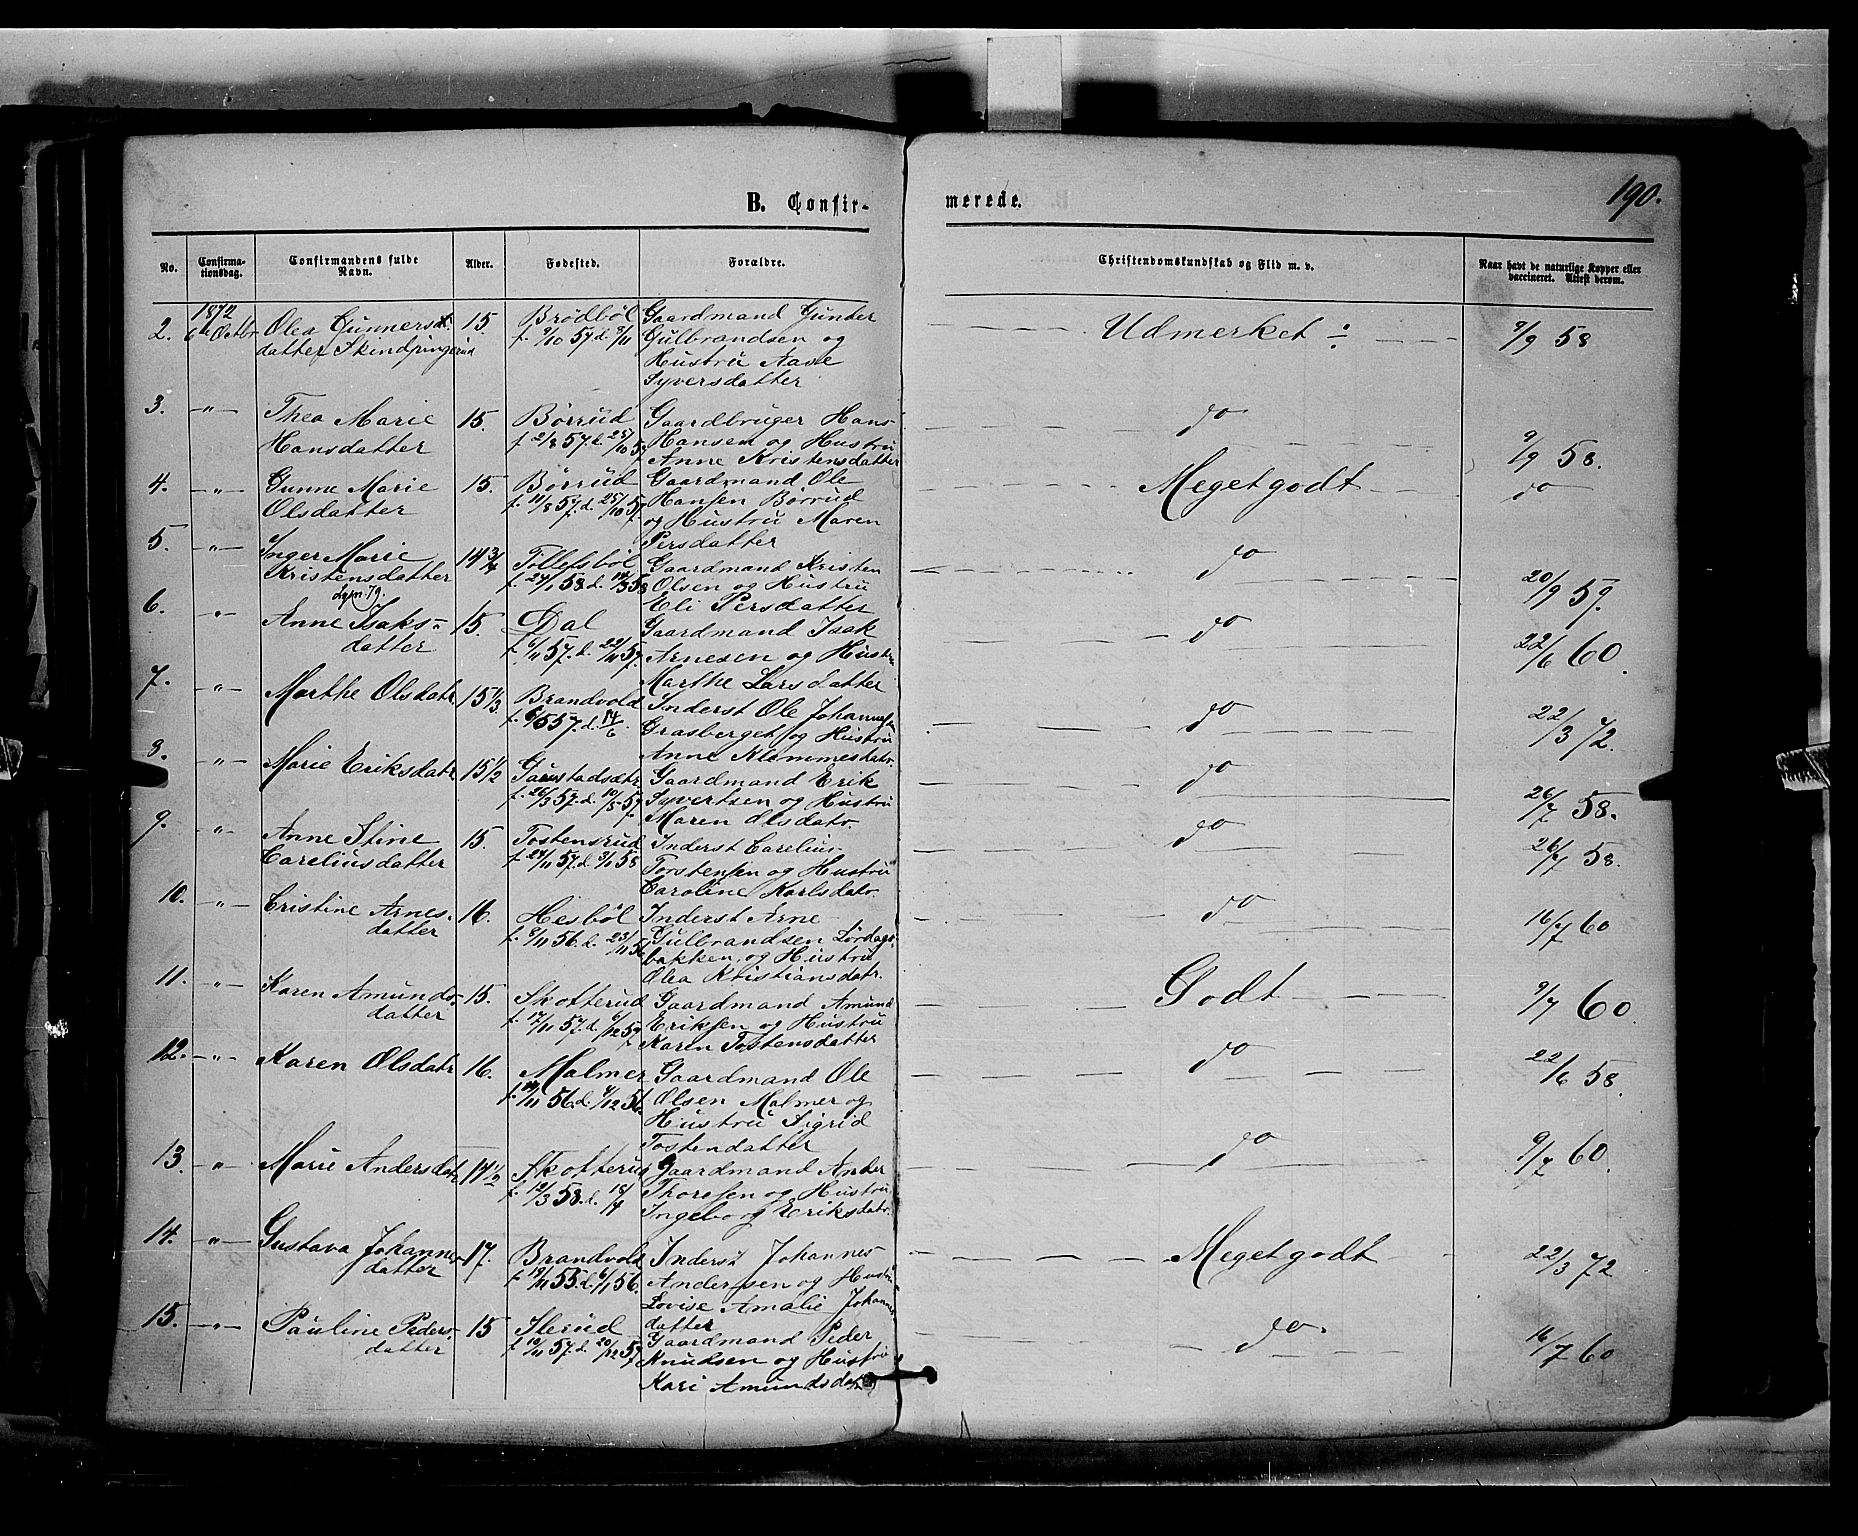 190.
B. Confir-
merede.
No.
Confirma-
tionsdag.
Confirmandens fulde
Navn.
Alder.
Fødested.
Forældre.
Christendomskundskab og Flid m. v.
Naar havt de naturlige Kopper eller
vaccineret. Attest derom.
1872
2. 6te Octbr Olea Gunners- 15. Brødbøl Gaardmand Gunder
datter Skindpungerud f. 9/10 57 d. 8/11 Gulbrandsen og Udmerket 9/9 58
Hustru Aase
Syversdatter
3. -"- Thea Marie 15. Børrud Gaardbruger Hans do
Hansdatter f. 2/8 57. d. 25/10 57 Hansen og Hustru 9/9 58.
Anne Kristensdatter
4. -"- Gunne Marie 15. Børrud Gaardmand Ole Meget godt do
Olsdatter f. 11/8 57. d. 25/10 57 Hansen Børrud
og Hustru Maren
Persdatter
5. -"- Inger Marie 14 3/4 Tollefsbøl Gaardmand Kristen do
Kristensdatter f. 24/1 58 d. 14/3 58 Olsen og Hustru 20/9 59.
Eli Persdatter
6. " Anne Isaks- 15. Dal Gaardmand Isak do
datter f. 6/11 57. d. 22/11 57. Arnesen og Hustru 22/6 60.
Marthe Larsdatter
7. -"- Marthe Olsdatr 15 1/3 Brandvold Inderst Ole Johannesen do
f. 6/5 57. d. 14/6 Grasberget og Hustru 22/3 72.
Anne Klemmetsdatr.
8. -"- Marie Eriksdatr 15 1/2 Gaustadsætr Gaardmand Erik do
f. 26/3 57. d. 10/5 57. Syvertsen og Hustru 26/7 58.
Maren Olsdatr.
9. " Anne Stine 15. Tostensrud Inderst Carelius do
Careliusdatter f. 24/11 57. d. 3/1 58 Torstensen og Hustru 26/7 58.
Caroline Karlsdatr.
10. -"- Cristine Arnes- 16. Hesbøl Inderst Arne do
datter f. 8/11 56. d. 23/11 56 Gulbrandsen Lørdags- 16/7 60
bakken og Hustru
Olea Kristiansdatr.
11. -"- Karen Amunds- 15. Skotterud Gaardmand Amund Godt
datter f. 17/11 57. d. 6/12 57 Eriksen og Hustru 9/7 60.
Karen Tostensdatter
12. -"- Karen Olsdatr 16. Malmer Gaardmand Ole do
f. 14/11 56. d. 7/12 56. Olsen Malmer og 22/6 58.
Hustru Sigrid
Tostendatter
13. -"- Marie Andersdatr 14 1/2 Skotterud Gaardmand Ander do
f. 12/3 58. d. 18/4 Thoresen og Hustru 9/7 60.
Ingeborg Eriksdatr.
14. -"- Gustava Johannes- 17. Brandvold Inderst Johannes Meget godt
datter f. 19/11 55. d. 6/1 56. Andersen og Hustru 22/3 72
Lovise Amalie Johannes
datter
15. -"- Pauline Peders- 15 Slerud Gaardmand Peder do.
datter f. 10/11 57. d. 20/12 57 Knudsen og Hustru 16/7 60
Kari Amundsdatr